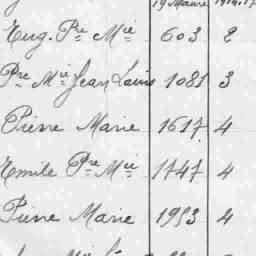 Eug. Pre Mie 603 2
Pre Mie Jean Louis 1081 3
Pierre Marie 1617 4
Emile Pre Mie 1747 4
Pierre Marie 1953 4